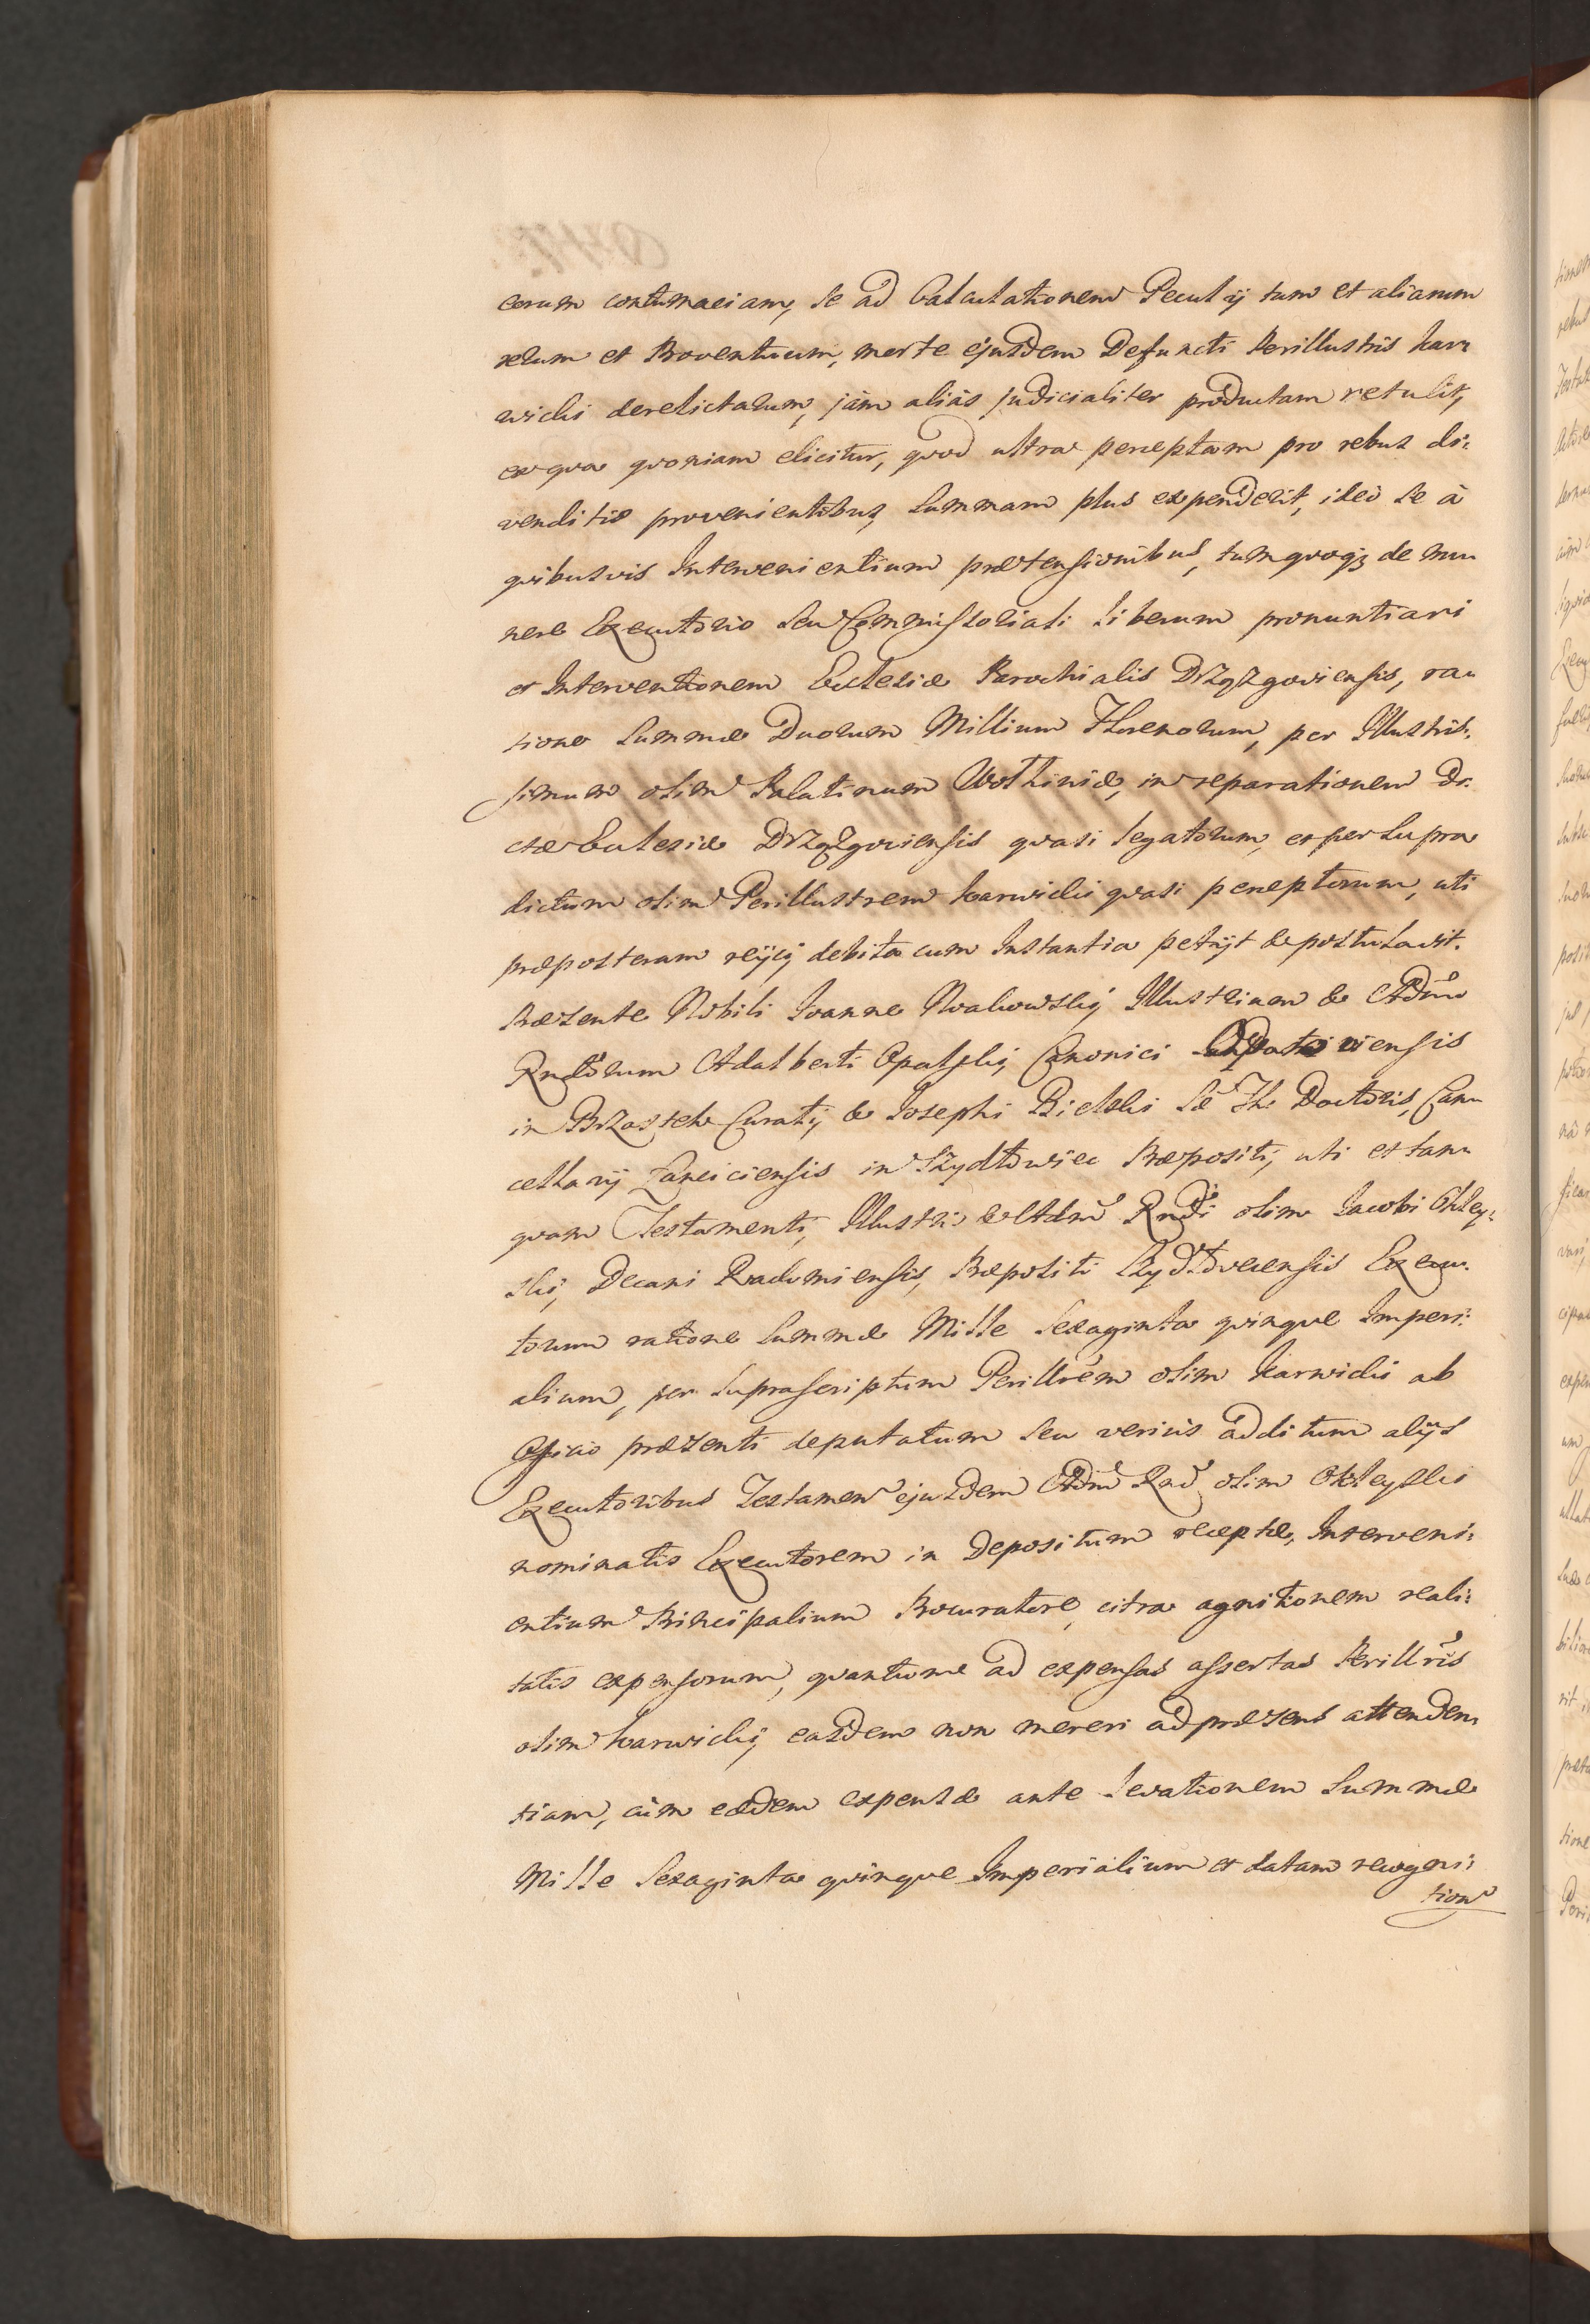 eorum contumaciam, se ad Calculationem Peculij tum et aliarum
rerum et Proventuum, morte ejusdem Defuncti Perillustris Kar„
wicki derelictarum, jàm aliàs judicialiter productam retulit,
ex qva qvoniam elicitur, qvod ultra perceptam pro rebus di:
venditis provenientibus, Summam plus expenderit, ideò se à
qvibusvis Intervenientium prætensionibus, tum qvoqȝ de mu„
nere Executorio seu Commissoriali liberum pronuntiari
et Interventionem Ecclesiæ Parochialis Drzązgoviensis, ra„
tione Summæ Duorum Millium Florenorum, per Illustris:
simum olim Palatinum Wolhiniæ, in reparationem Di:
ctæ Ecclesiæ Drzązgoviensis qvasi legatorum, et per Supra
dictum olim Perillustrem Karwicki qvasi perceptorum, uti
præposteram rejici, debita cum Instantia petijt & postulavit.
Præsente Nobili Joanne Makowskij Illustrium & Adm̃
Rndorum Adalberti Opalskij Canonici
in Brzastek Curati, & Josephi Bielski S. Th. Doctoris, Can„
cellarij Lanciciensis in Szydłowiec Præpositi, uti et tan„
qvam Testamenti, Illustris & Adm̃ Rndi olim Jacobi Okley:
skij, Decani Radomiensis, Præpositi Szydłoviecensis Execu:
torum ratione Summæ Mille Sexaginta qvinqve Imperi:
alium, per Suprascriptum Perillrem olim Karwicki ab
Officio præsenti deputatum seu veriùs additum alijs
Executoribus Testamen ejusdem Adm̃ Rnd olim Okleyski
nominatis Executorem in Depositum receptæ, Interveni:
entium Principalium Procuratore, citra agnitionem reali:
tatis expensorum, qvantum ad expensas assertas Perillris
olim Karwickij, easdem non mereri ad præsens attenden„
tiam, cùm eædem expensæ ante levationem Summæ
Mille Sexaginta qvinqve Imperialium et datam recogni:
tion